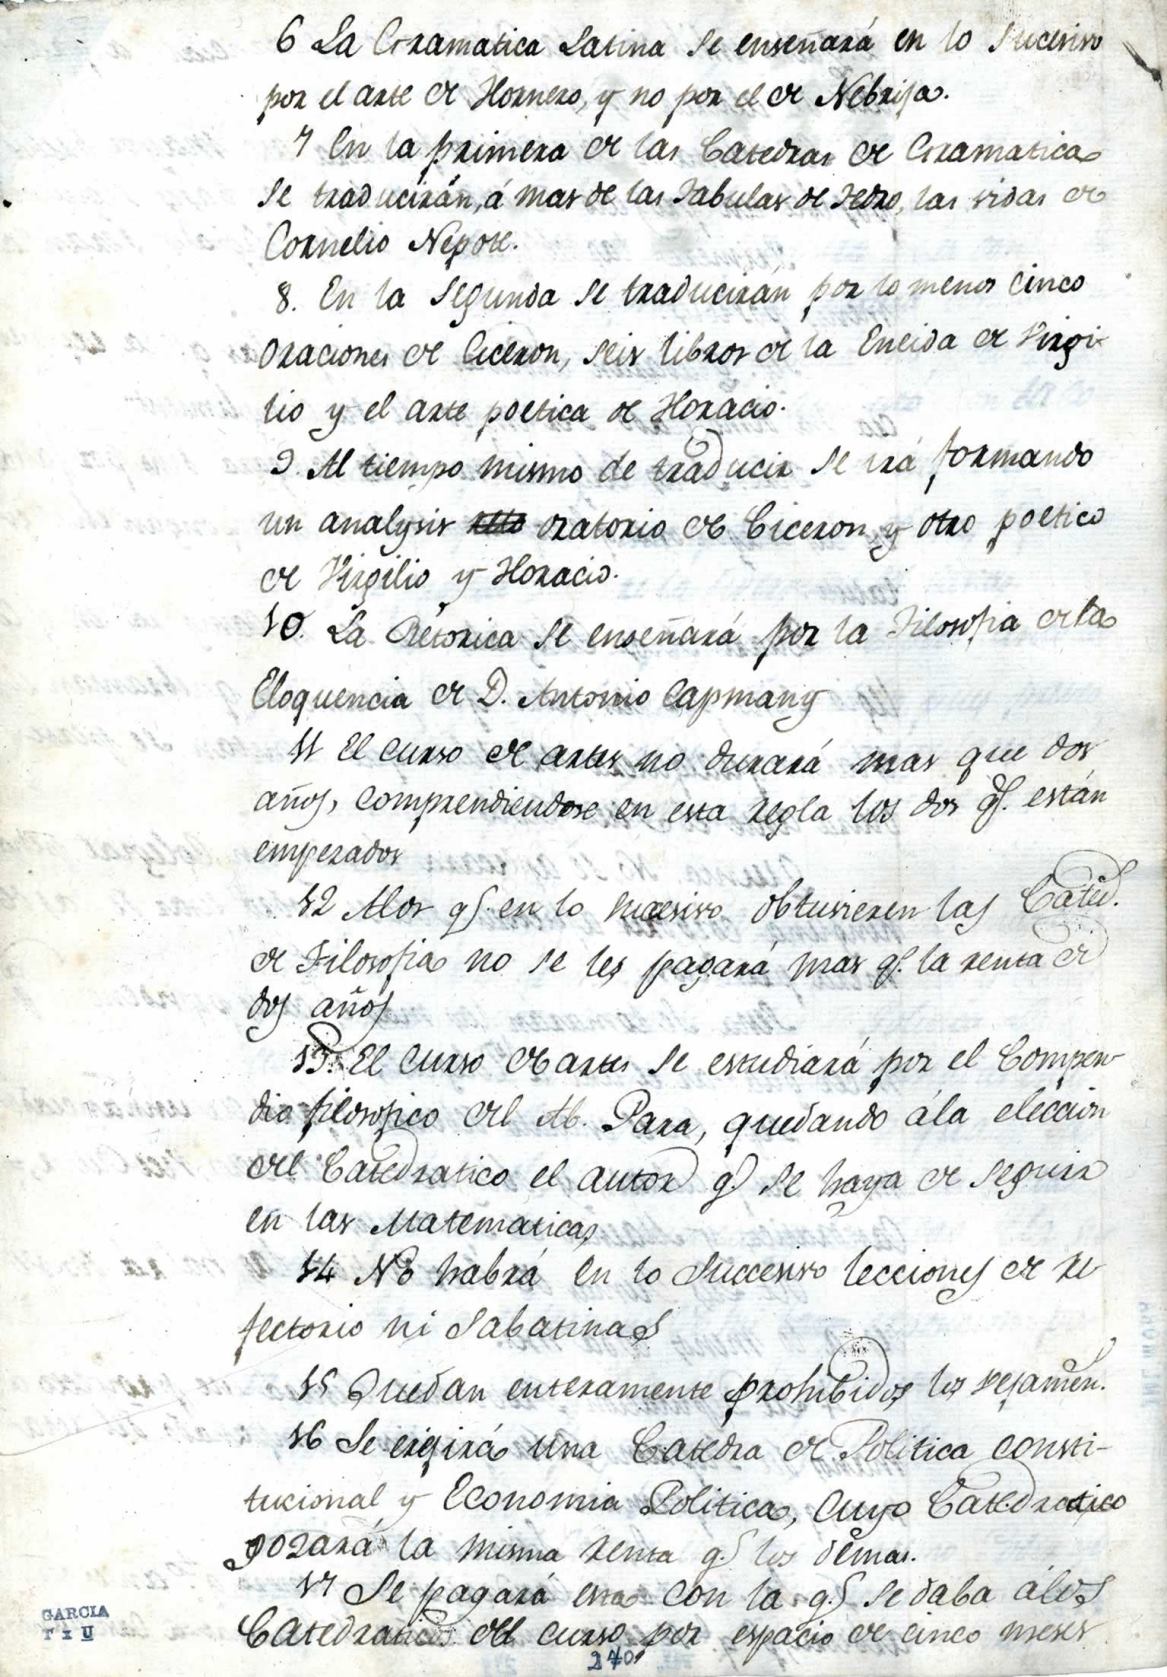 6 La Gramatica Latina se enseñará en lo sucesivo
por el arte de Hornero, y no por el de Nebrija.
7 En la primera de las Catedras de Gramatica
se traducirán, á mas de las Fabulas de Fedro, las vidas de
Cornelio Nepote.
8. En la segunda se traducirán por lo menos cinco
oraciones de Ciceron, seis libros de la Eneida de Virgi-
lio y el arte poetica de Horacio.
9. Al tiempo mismo de traducir se irá formando
un analysis oratorio de Ciceron, y otro poetico
de Virgilio y Horacio.
10. La Retorica se enseñará por la Filosofia de la
Eloquencia de D. Antonio Capmany
11 El curso de artes no durará mas que dos
años, comprendiendose en esta regla los dos q.e están
empezados
12 Alos q.e en lo sucesivo obtuvieren las Cated.
de Filosofia no se les pagará mas q.e la renta de
dos años
13. El curso de artes se estudiará por el Compen-
dio filosofico del Ab. Para, quedando á la eleccion
del Catedratico el autor q.e se haya de seguir
en las Matematicas
14 No habrá en lo Succesivo lecciones de re-
fectorio ni Sabatinas
15 Quedan enteramente prohibidos los vejamen.
16 Se erigirá una Catedra de Politica consti-
tucional y Economia Politica, cuyo Catedratico
gozará la misma renta q.e los demas.
17 Se pagará esta con la q.e se daba álos
Catedraticos del curso por espacio de cinco meses
GARCIA
270